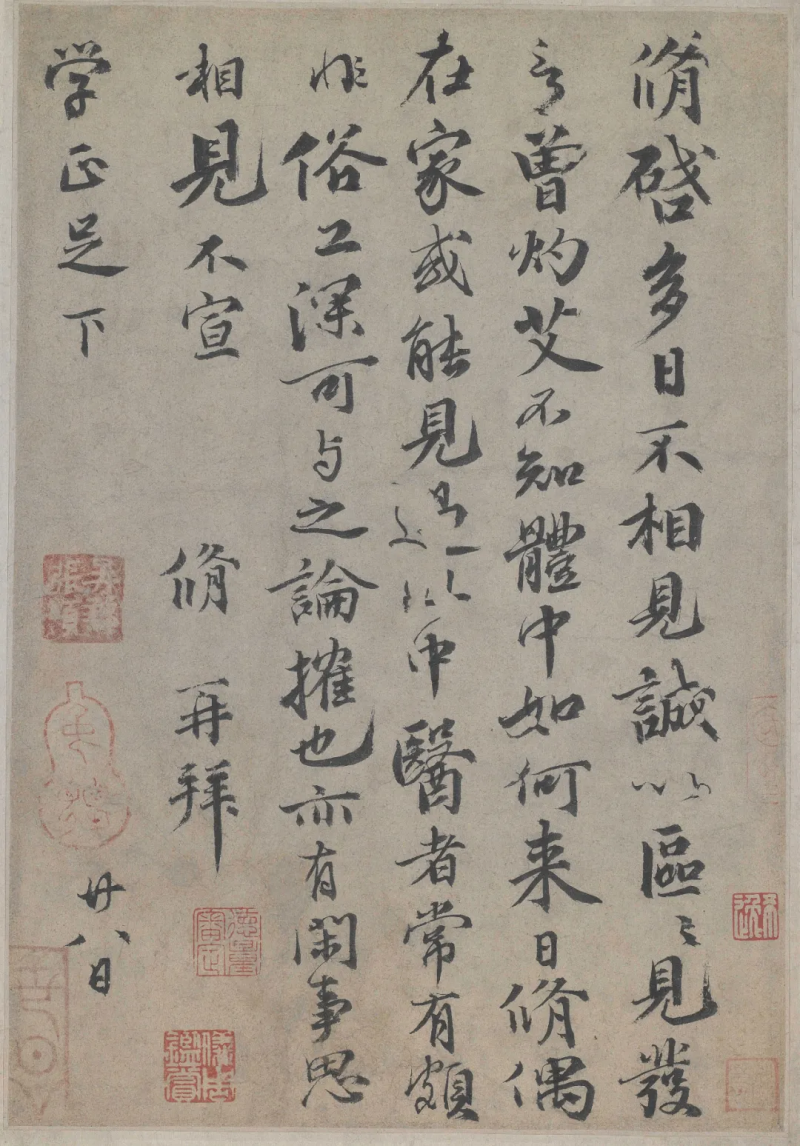 脩啓多日不相見誠以區區見發
言曾灼艾不知體中如何来日脩偶
在家或能見過以中醫者常有頗
非俗工深可与之論攉也亦有閑事思
相見不宣 脩再拜
学正足下 廿八日